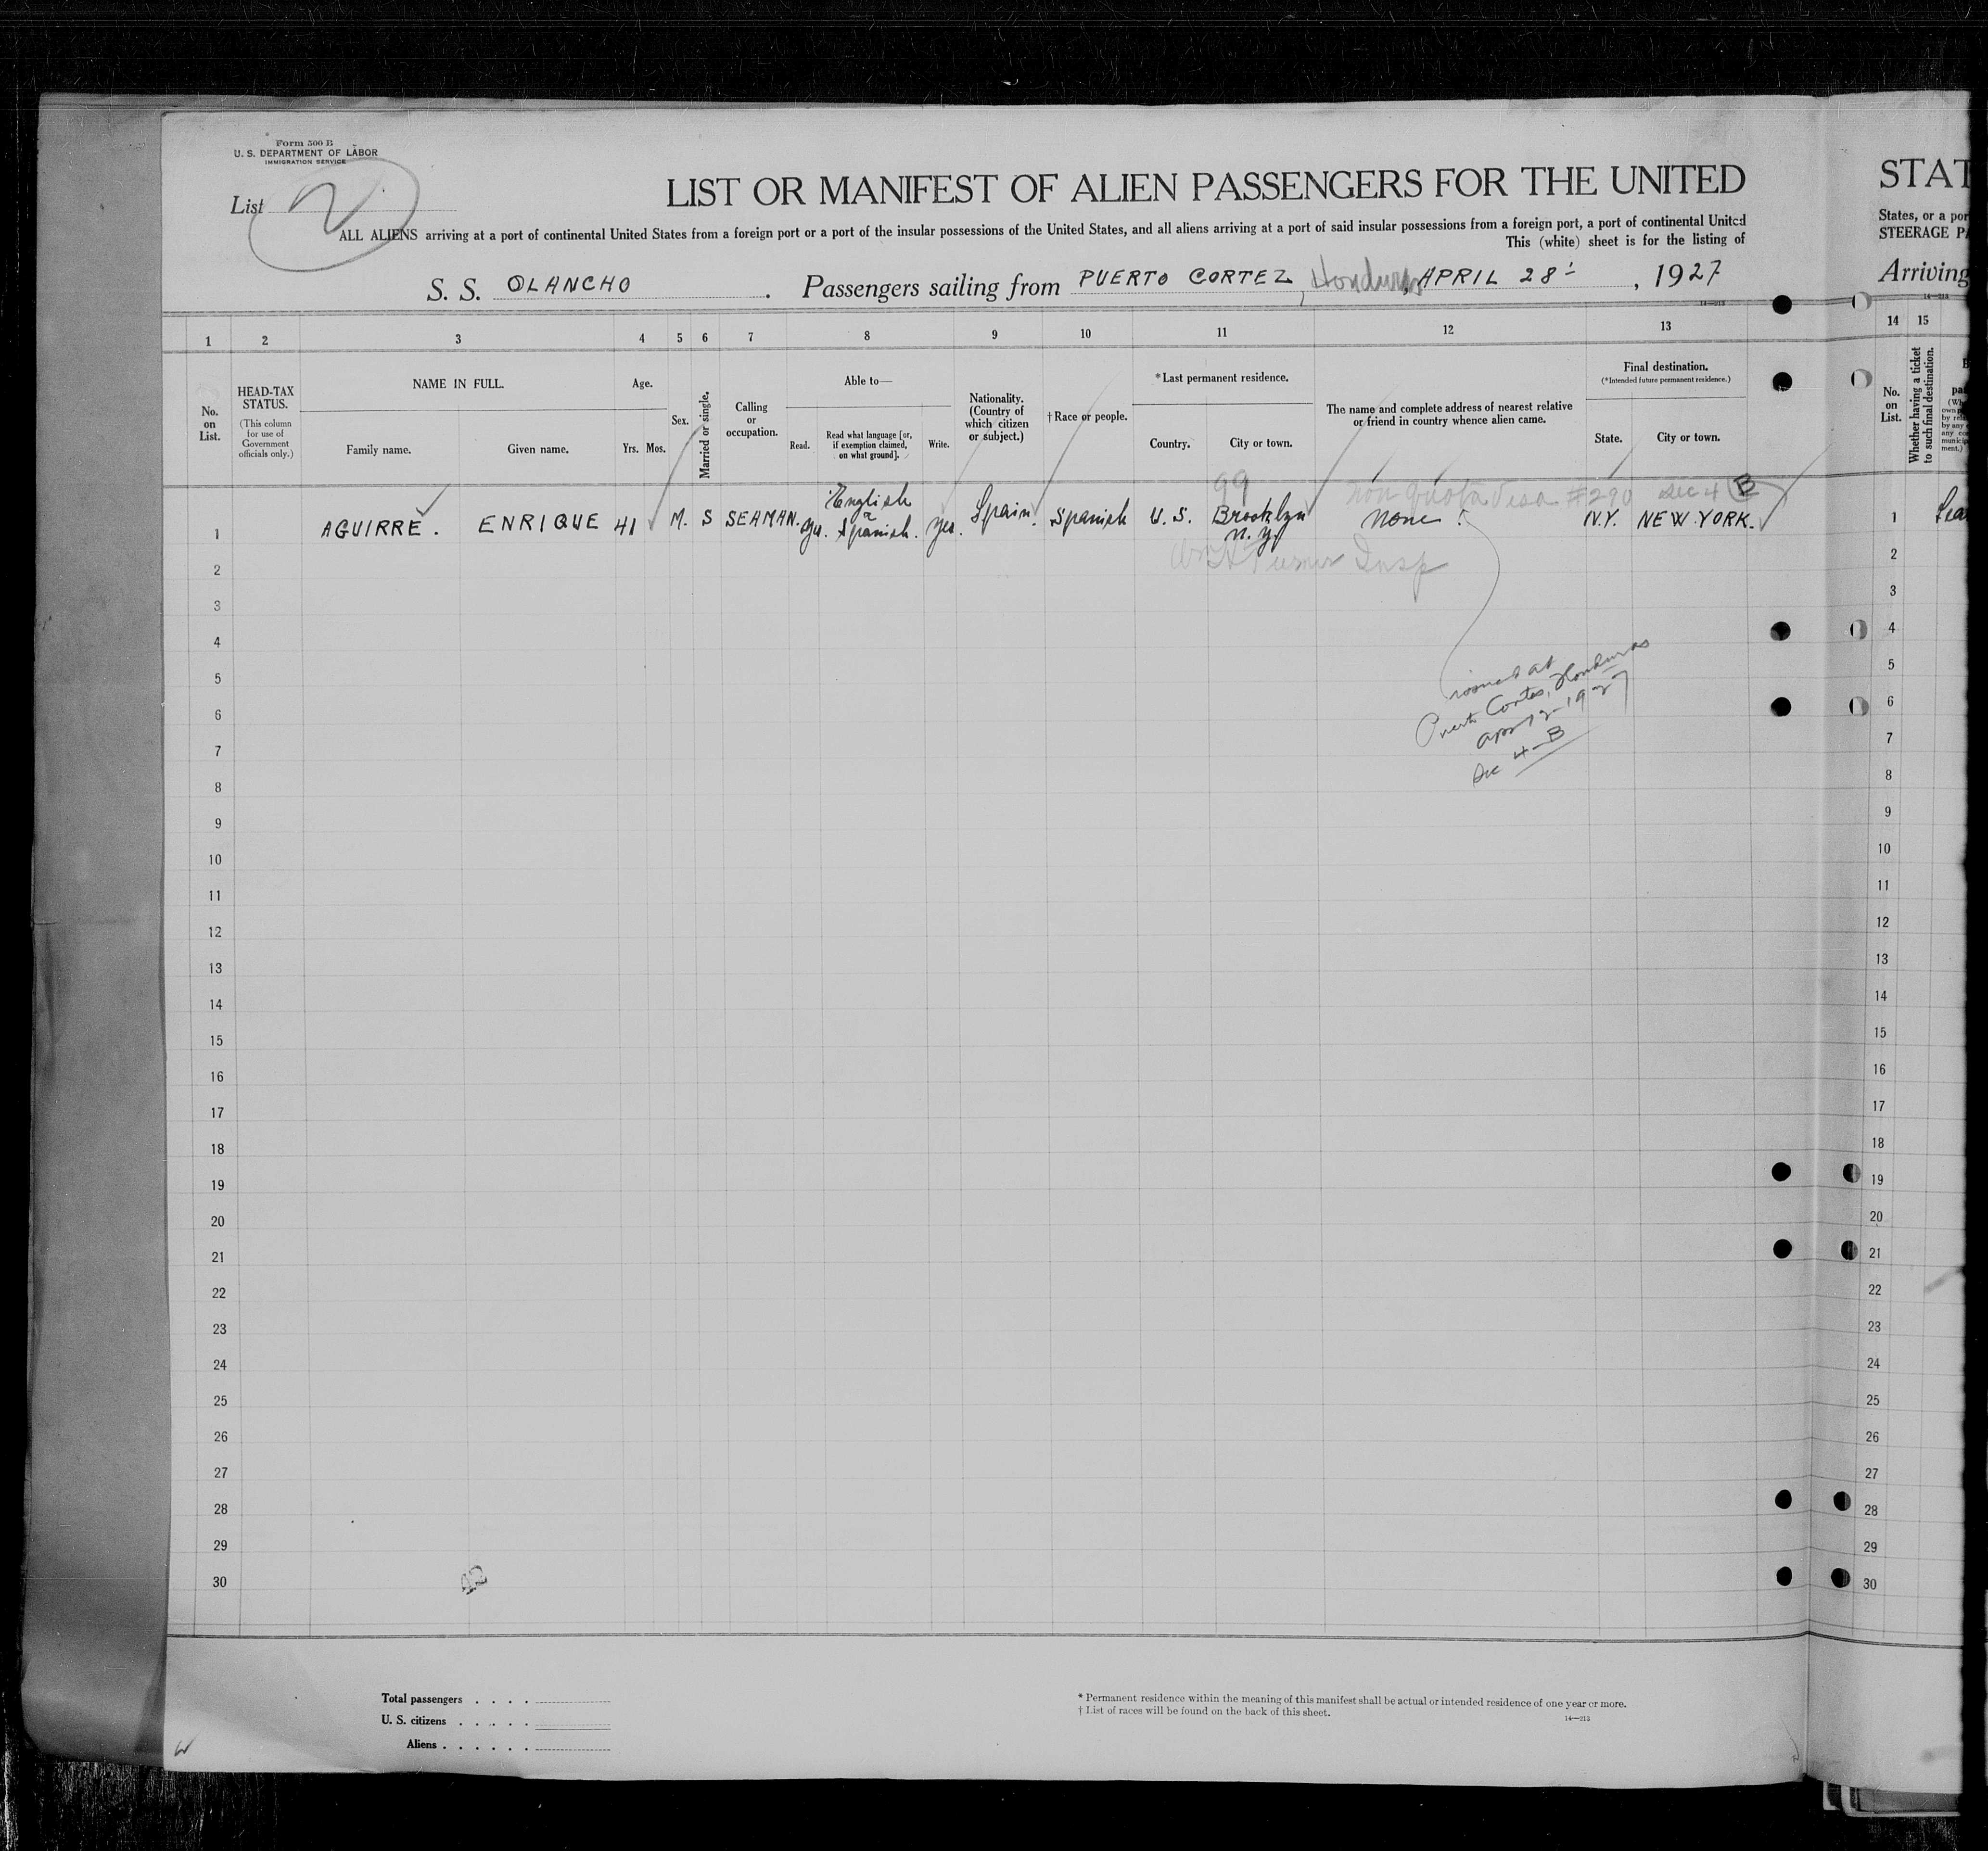 Form 500 B
U. S. DEPARTMENT OF LABOR
IMMIGRATION SERVICE
List
LIST OR MANIFEST OF ALIEN PASSENGERS FOR THE UNITED
ALL ALIENS arriving at a port of continental United States from a foreign port or a port of the insular possessions of the United States, and all aliens arriving at a port of said insular possessions from a foreign port, a port of continental United
This (white) sheet is for the listing of
S. S. OLANCHO . Passengers sailing from PUERTO CORTEZ, Honduras, APRIL 28, 1927
14—213
1 2 3 4 5 6 7 8 9 10 11 12 13
No. on List.
HEAD-TAX STATUS.
(This column for use of Government officials only.)
NAME IN FULL.
Family name.
Given name.
Age.
Yrs. Mos.
Sex.
Married or single.
Calling or occupation.
Able to—
Read.
Read what language [or, if exemption claimed, on what ground].
Write.
Nationality. (Country of which citizen or subject.)
† Race or people.
*Last permanent residence.
Country.
City or town.
The name and complete address of nearest relative or friend in country whence alien came.
Final destination.
(*Intended future permanent residence.)
State.
City or town.
99 non quota Visa #290 Sec 4 B
1 AGUIRRE. ENRIQUE 41 M. S SEAMAN. yes. English & Spanish. yes. Spain. Spanish U. S. Brooklyn N. Y. None N.Y. NEW YORK.
Insp
2
3
4
5
issued at
Puerto Cortes, Honduras
6
Apr 12 1927
7
Sec 4-B
8
9
10
11
12
13
14
15
16
17
18
19
20
21
22
23
24
25
26
27
28
29
30
Total passengers . . . .
U. S. citizens . . . . .
Aliens . . . . . .
* Permanent residence within the meaning of this manifest shall be actual or intended residence of one year or more.
† List of races will be found on the back of this sheet.
14—213
STAT
States, or a por
STEERAGE PA
Arriving
14—213
14 15
No. on List.
Whether having a ticket to such final destination.
1
2
3
4
5
6
7
8
9
10
11
12
13
14
15
16
17
18
19
20
21
22
23
24
25
26
27
28
29
30